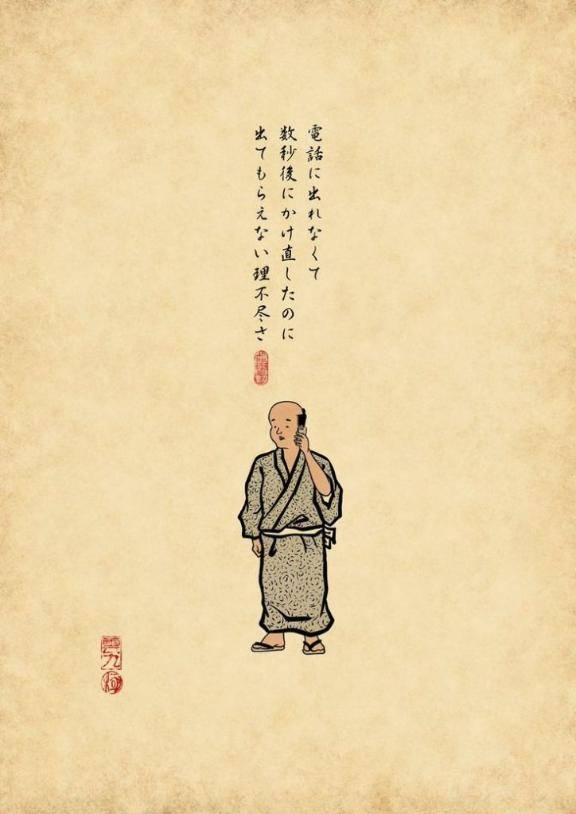 電話に出れなくて
数秒後にかけ直したのに
出てもらえない理不尽さ